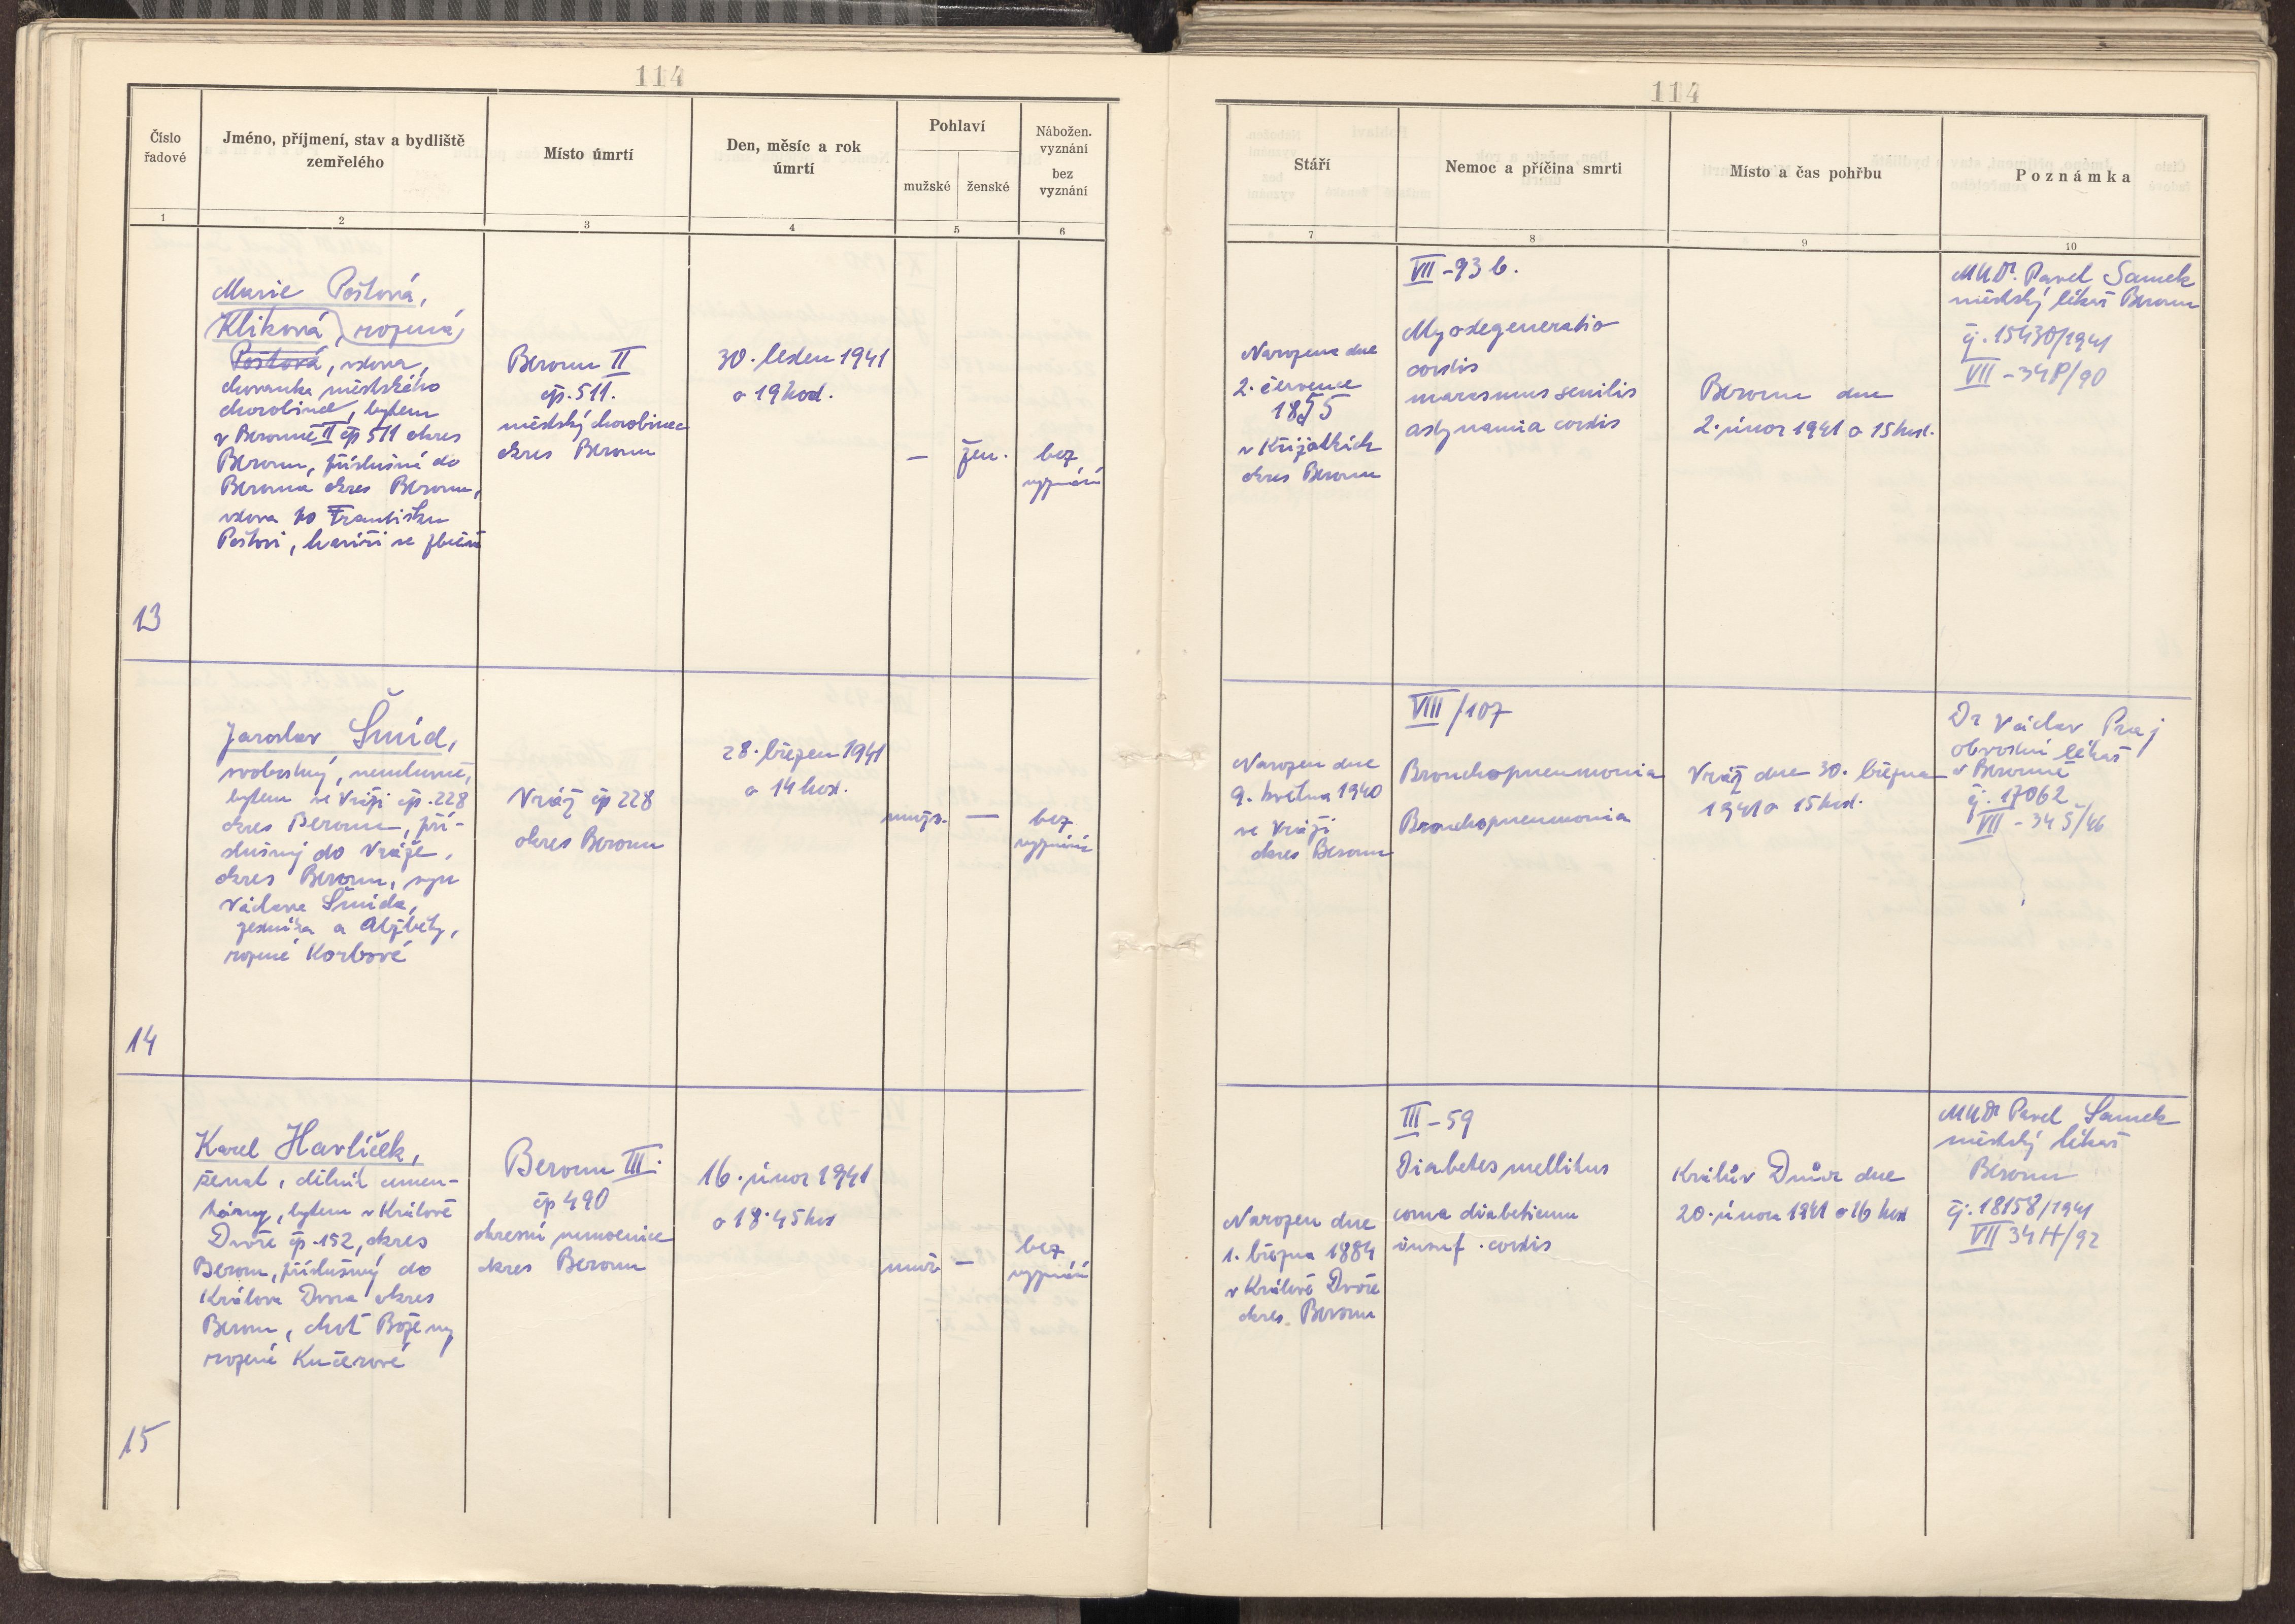 114
Číslo
řadové
Jméno, příjmení, stav a bydliště
zemřelého
Místo úmrtí
Den, měsíc a rok
úmrtí
Pohlaví
mužské
ženské
Nábožen.
vyznání
bez
vyznání
1
2
3
4
5
6
Marie Poštová,
Kliková, rozená
Poštová, vdova,
chovanka městského
chorobince, bytem
v Berouně II čp 511 okres
Beroun, příslušná do
Berouna okres Beroun,
vdova po Františku
Poštovi,
Beroun II
čp. 511.
městský chorobinec
okres Beroun
30. leden 1941
o 19 hod.
—
žen.
bez
vyznání
13
Jaroslav Šmíd,
svobodný, nemluvně,
bytem ve Vráži čp. 228
okres Beroun, pří-
slušný do Vráže,
okres Beroun, syn
Václava Šmída,
zedníka a Alžběty,
rozené Korbové
Vráž čp 228
okres Beroun
28. březen 1941
o 14 hod.
mužs.
—
bez
vyznání
14
Karel Havlíček,
ženat, dělník cemen-
tárny, bytem v Králově
Dvoře čp. 152, okres
Beroun, příslušný do
Králova Dvora okres
Beroun, choť Boženy
rozené Kučerové
Beroun III.
čp 490
okresní nemocnice
okres Beroun
16. únor 1941
o 18.45 hod
muž.
—
bez
vyznání
15
114
Stáří
Nemoc a příčina smrti
Místo a čas pohřbu
Poznámka
7
8
9
10
Narozena dne
2. července
1855
v
okres Beroun
VII - 93 b.
Myodegeneratio
cordis
marasmus senilis
adynamia cordis
Beroun dne
2. únor 1941 o 15 hod.
MUDr. Pavel Samek
městský lékař Beroun
čj. 15430/1941
VII - 34P/90
Narozen dne
9. května 1940
ve Vráži
okres Beroun
VIII/107
Bronchopneumonia
Bronchopneumonia
Vráž dne 30. března
1941 o 15 hod.
Dr Václav
obvodní lékař
v Berouně
čj. 17062
VII - 34 Š/46
Narozen dne
1. března 1884
v Králově Dvoře
okres. Beroun
III - 59
Diabetes mellitus
coma diabeticum
insuf. cordis
Králův Dvůr dne
20. února 1941 o 16 hod
MUDr Pavel Samek
městský lékař
Beroun
čj. 18158/1941
VII 34 H/92